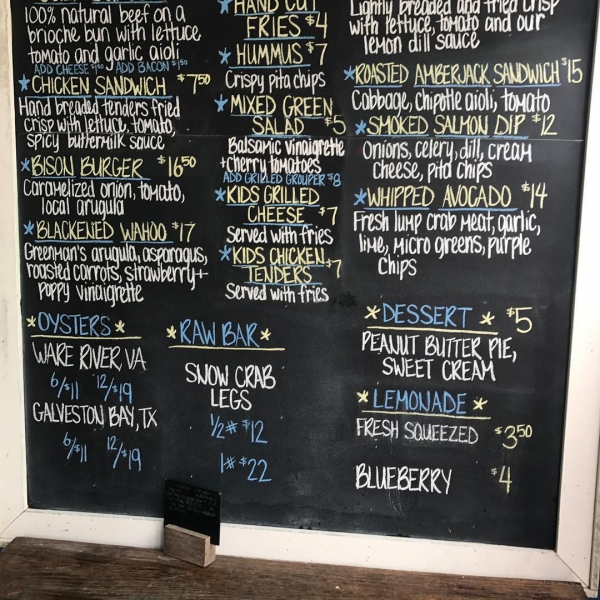 100% natural beef on a
brioche bun with lettuce
tomato and garlic aioli
ADD CHEESE $1.50 ADD BACON $1.50
*CHICKEN SANDWICH $7.50
Hand breaded tenders fried
crisp with lettuce, tomato,
spicy buttermilk sauce
*BISON BURGER $16.50
Caramelized onion, tomato,
local arugula
*BLACKENED WAHOO $17
Greenman's arugula, asparagus,
roasted carrots, strawberry+
poppy vinaigrette
*OYSTERS*
WARE RIVER, VA
6/$11 12/$19
GALVESTON BAY, TX
6/$11 12/$19
*HAND CUT
FRIES $4
*HUMMUS $7
Crispy pita chips
*MIXED GREEN
SALAD $5
Balsamic vinaigrette
+cherry tomatoes
ADD GRILLED GROUPER $8
*KIDS GRILLED
CHEESE $7
Served with fries
*KIDS CHICKEN
TENDERS $7
Served with fries
*RAW BAR*
SNOW CRAB
LEGS
1/2# $12
1# $22
Lightly breaded and fried crisp
with lettuce, tomato and our
lemon dill sauce
*ROASTED AMBERJACK SANDWICH $15
Cabbage, chipotle aioli, tomato
*SMOKED SALMON DIP $12
Onions, celery, dill, cream
cheese, pita chips
*WHIPPED AVOCADO $14
Fresh lump crab meat, garlic,
lime, micro greens, purple
chips
*DESSERT* $5
PEANUT BUTTER PIE,
SWEET CREAM
*LEMONADE*
FRESH SQUEEZED $3.50
BLUEBERRY $4